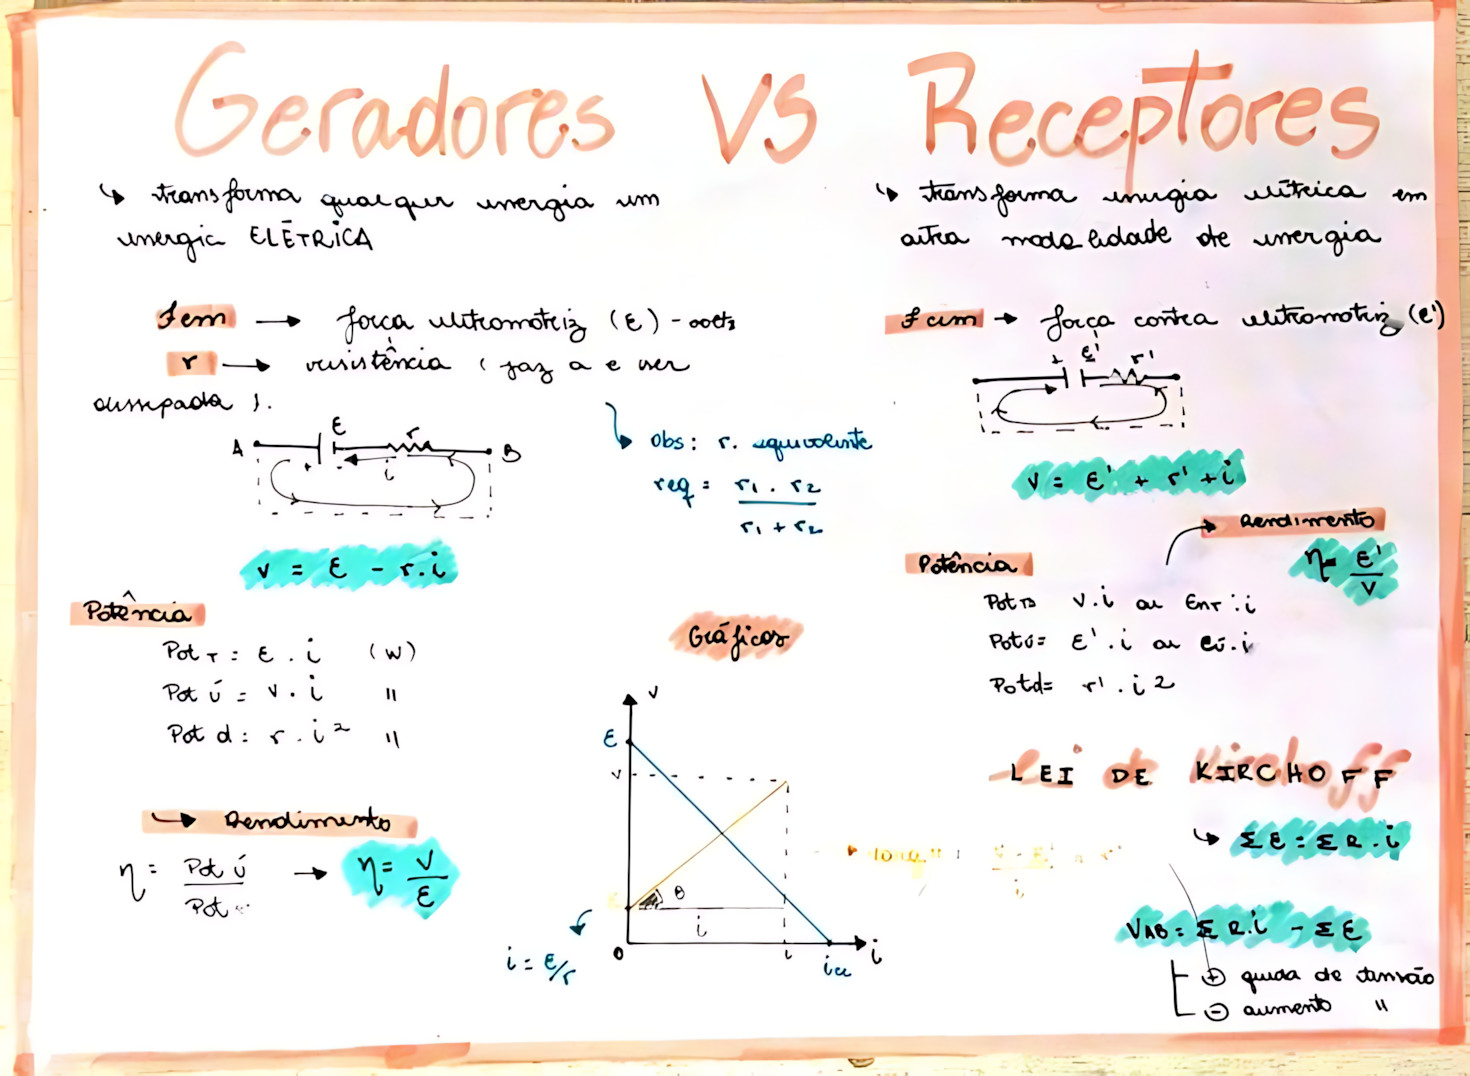 Geradores VS Receptores
↳ transforma qualquer energia em
energia ELÉTRICA
fem → força eletromotriz (ε) - volts
r → resistência ( faz a e ser
dissepada ).
A ε r B
+ - i
obs: r. equivalente
req = r1 . r2
r1 + r2
v = ε - r.i
Potência
Pot T = ε . i (W)
Pot ú = v . i "
Pot d = r . i² "
↳ Rendimento
η = Pot ú → η = v
Pot ε
Gráficos
v
ε
v
θ
i
0 i icc i
i = ε/r
↳ transforma energia elétrica em
outra modalidade de energia
fcem → força contra eletromotriz (ε')
+ ε' r'
v = ε' + r' + i
→ Rendimento
η = ε'
v
Potência
Pot T= v.i ou Ent.i
Potú= ε'.i ou εú.i
Potd= r'.i2
LEI DE KIRCHOFF
↳ Σε = ΣR.i
VAB = ΣR.i - Σε
⊕ queda de tensão
⊖ aumento "